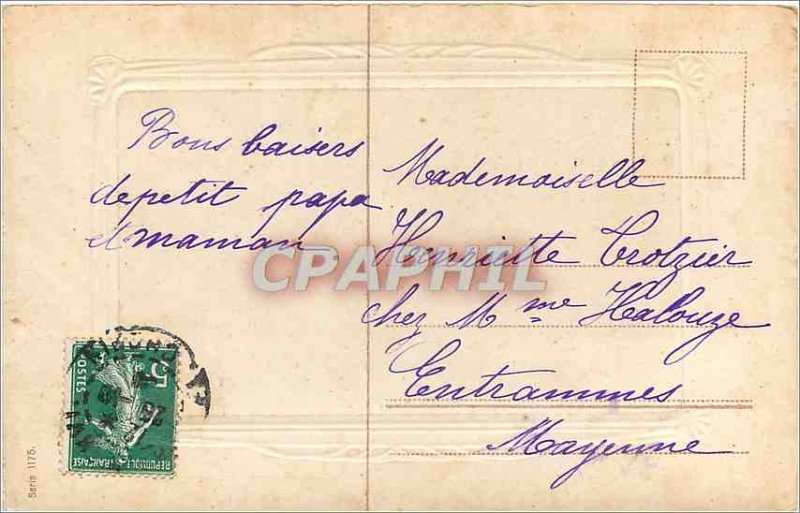 Bons baisers
de petit papa
et maman
Mademoiselle
Henriette Trotzier
chez Mme Halouze
Entrammes
Mayenne
CPARPHIL
5
POSTES
REPUBLIQUE FRANÇAISE
Serie 1175.